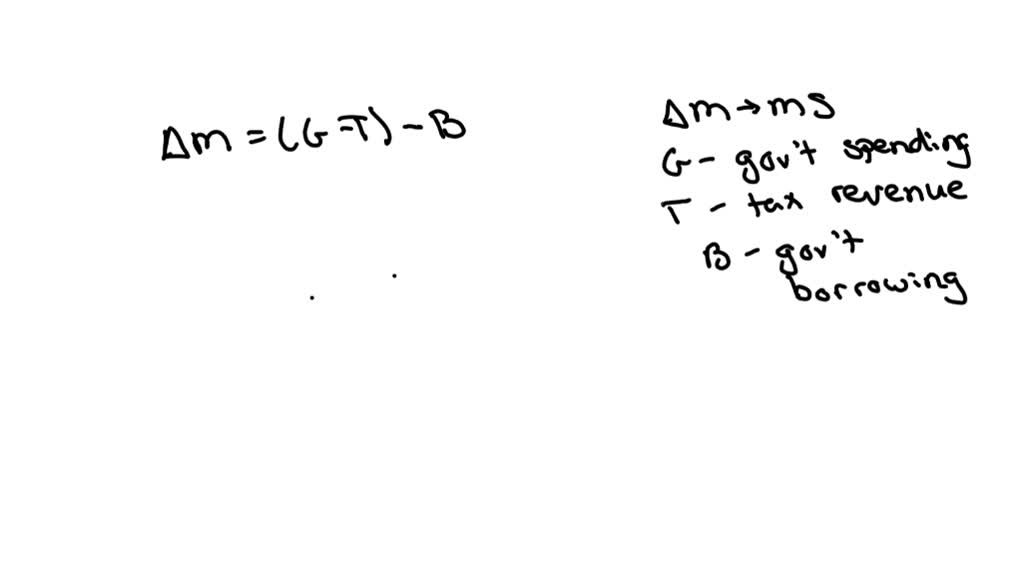 Δm = (G-T) - B
Δm → mS
G - gov't spending
T - tax revenue
B - gov't
borrowing